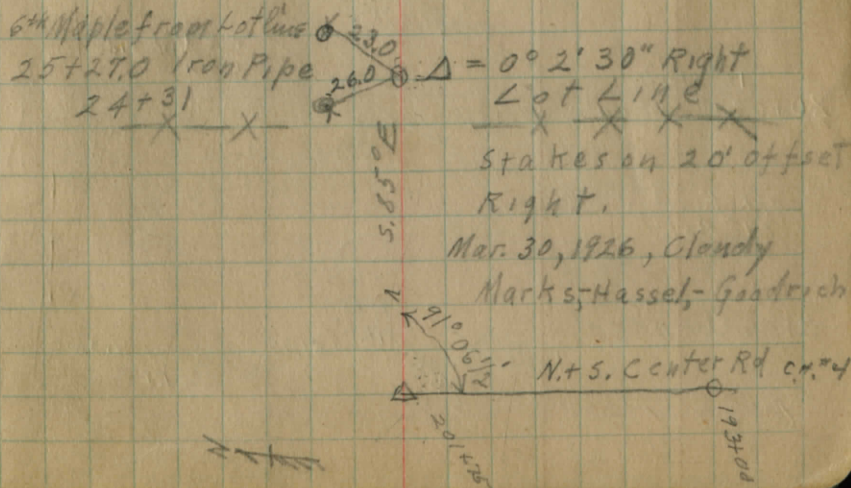 6th Maple from Lotline
23.0
25+27.0 Iron Pipe
26.0
24+31
Δ = 0° 2' 30" Right
Lot Line
S. 85° E
Stakes on 20' offset
Right.
Mar. 30, 1926, Cloudy
Marks,-Hassel,- Goodrich
91° 06 1/2'
N.+ S. Center Rd C.H. #4
201+75
193+00
N